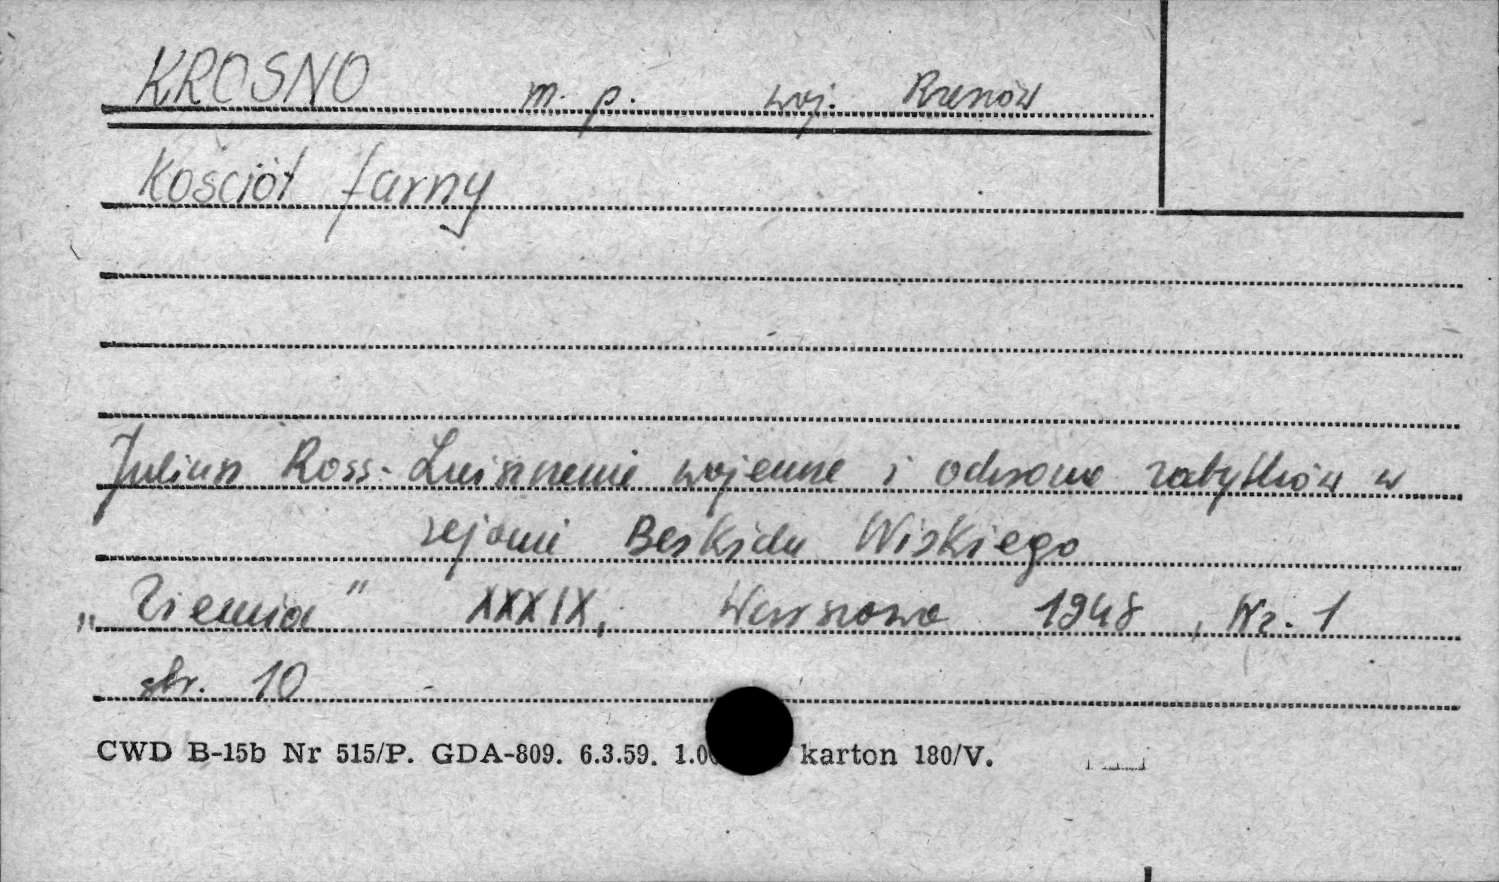 KROSNO m. p. woj. Rzeszów
Kościół farny
Juliusz Ross: Zniszczenie wojenne i odnowa zabytków w
rejonie Beskidu Niskiego
„Ziemia” XXXIX, Warszawa 1948, Nr. 1
str. 10
CWD B-15b Nr 515/P. GDA-809. 6.3.59. karton 180/V.